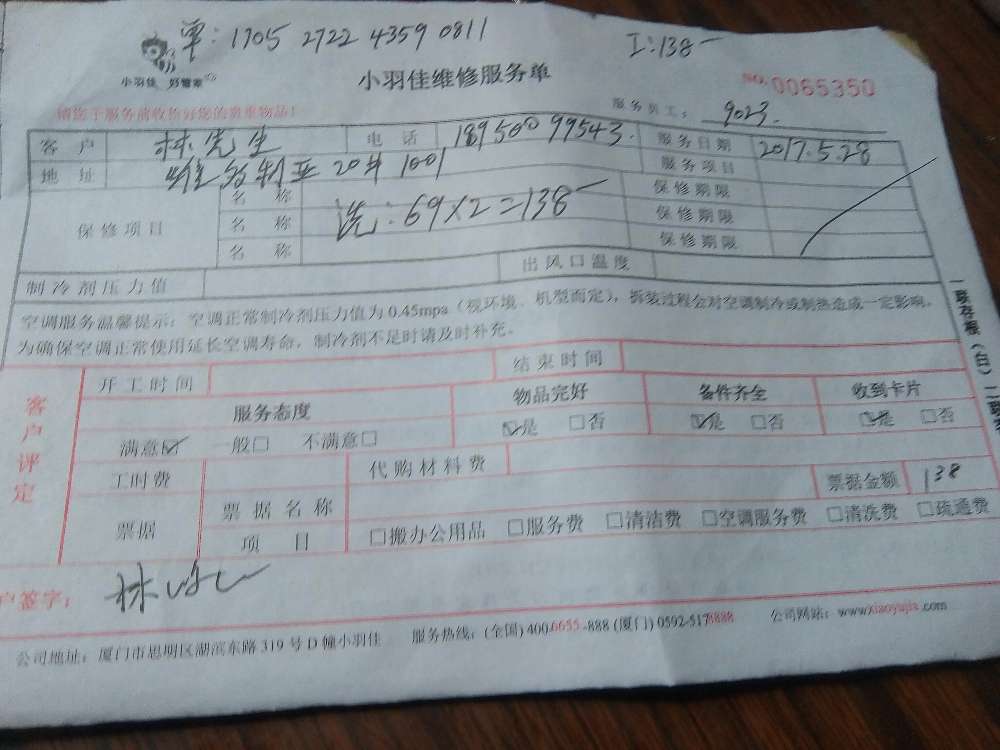 单: 1705 2722 4359 0811
工: 138-
小羽佳 好管家
小羽佳维修服务单
NO. 0065350
请您于服务前收拾好您的贵重物品!
服务员工: 9023
客户 林先生 电话 18950099543. 服务日期 2017.5.28
地址 维多利亚 20# 1001 服务项目
保修项目 名称 保修期限
名称 洗: 69×2=138- 保修期限
名称 保修期限
制冷剂压力值 出风口温度
空调服务温馨提示: 空调正常制冷剂压力值为0.45mpa(视环境、机型而定), 拆装过程会对空调制冷或制热造成一定影响,
为确保空调正常使用延长空调寿命, 制冷剂不足时请及时补充。
一联存根(白)二联客
客户评定
开工时间 结束时间
服务态度 物品完好 备件齐全 收到卡片
满意☑ 一般□ 不满意□ ☑是 □否 ☑是 □否 ☑是 □否
工时费 代购材料费 票据金额 138
票据 票据名称
项目 □搬办公用品 □服务费 □清洁费 □空调服务费 □清洗费 □疏通费
户签字: 林
公司地址: 厦门市思明区湖滨东路319号D幢小羽佳 服务热线: (全国) 400-6655-888 (厦门) 0592-5178888 公司网站: www.xiaoyujia.com